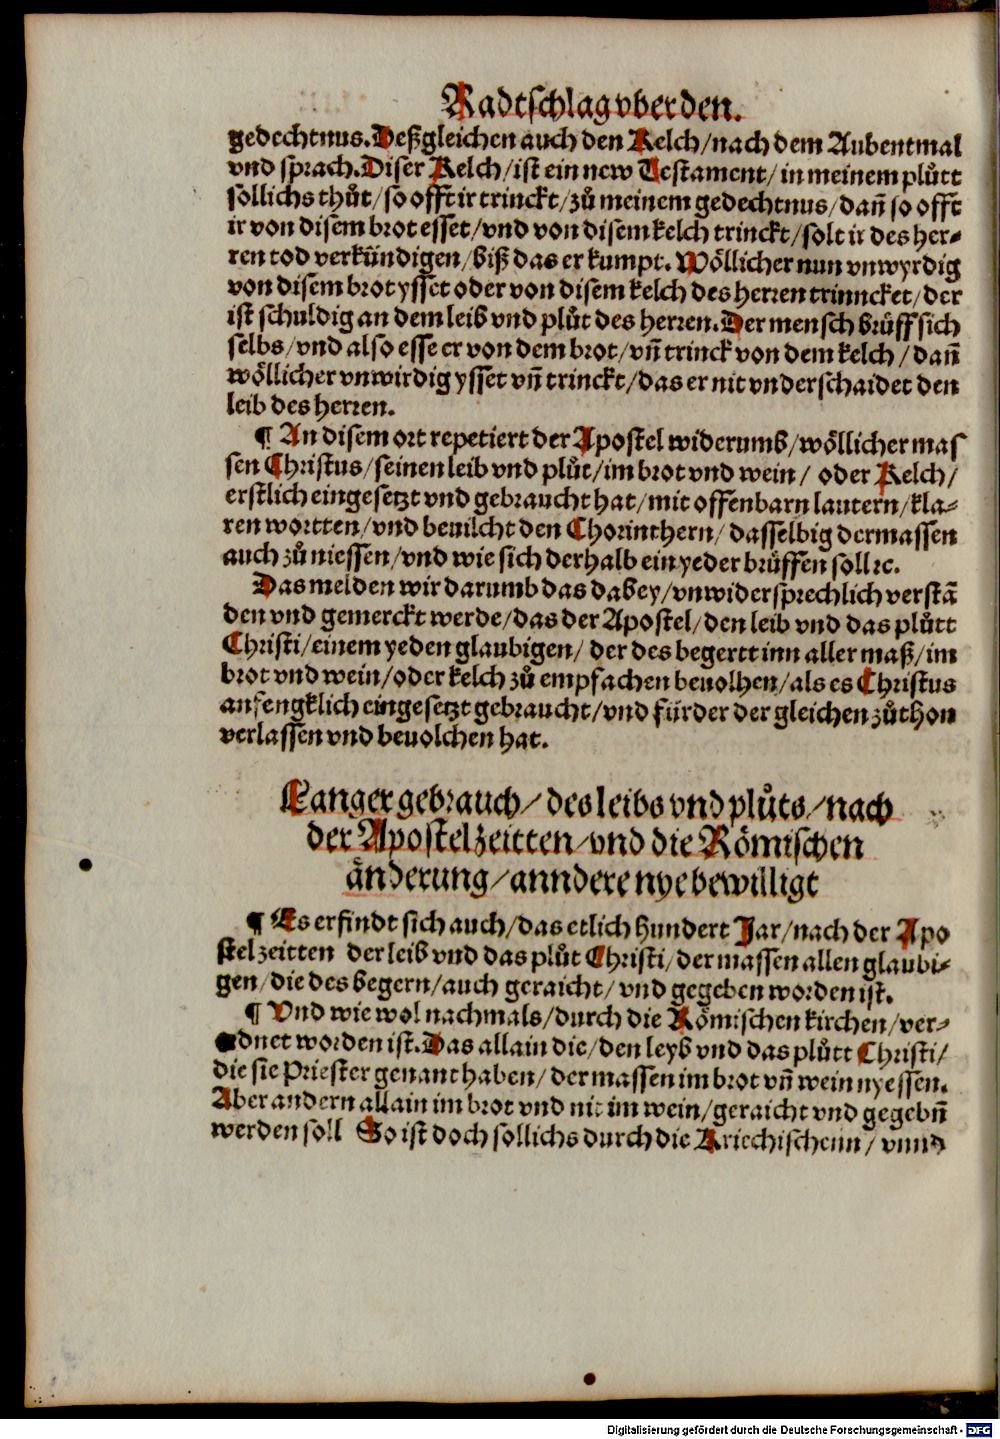 Radtschlag vber den.
gedechtnus. Deßgleichen auch den Kelch/nach dem Aubentmal
vnd sprach. Diser Kelch/ist ein new Testament/in meinem plůtt
sollichs thůt/so offt ir trinckt/zů meinem gedechtnus/dañ so offt
ir von disem brot esset/vnd von disem kelch trinckt/solt ir des her-
ren tod verkündigen/biß das er kumpt. Wöllicher nun vnwyrdig
von disem brot ysset oder von disem kelch des herren trinncket/der
ist schuldig an dem leib vnd plůt des herren. Der mensch brüff sich
selbs/vnd also esse er von dem brot/vñ trinck von dem kelch/dañ
wöllicher vnwirdig ysset vñ trinckt/das er nit vnderschaidet den
leib des herren.
¶ An disem ort repetiert der Apostel widerumb/wöllicher mas
sen Christus/seinen leib vnd plůt/im brot vnd wein/ oder Kelch/
erstlich eingesetzt vnd gebraucht hat/mit offenbarn lautern/kla-
ren wortten/vnd beuilcht den Chorinthern/ dasselbig dermassen
auch zů niessen/vnd wie sich derhalb ein yeder brüffen soll ꝛc.
Das melden wir darumb das dabey/vnwidersprechlich verstã
den vnd gemerckt werde/das der Apostel/den leib vnd das plůtt
Christi/einem yeden glaubigen/ der des begertt inn aller maß/im
brot vnd wein/oder kelch zů empfachen beuolhen/als es Christus
anfengklich eingesetzt gebraucht/vnd fürder der gleichen zůthon
verlassen vnd beuolchen hat.
Langer gebrauch/ des leibs vnd plůts/nach
der Apostel zeitten/vnd die Römischen
änderung/anndere nye bewilligt
¶ Es erfindt sich auch/das etlich hundert Jar/nach der Apo
stel zeitten der leib vnd das plůt Christi/dermassen allen glaubi-
gen/die des begern/auch geraicht/ vnd gegeben worden ist.
¶ Vnd wie wol nachmals/durch die Römischen kirchen/ver-
ordnet worden ist. Das allain die/den leyb vnd das plůtt Christi/
die sie Priester genant haben/dermassen im brot vñ wein nyessen.
Aber andern allain im brot vnd nit im wein/geraicht vnd gegebñ
werden soll So ist doch sollichs durch die Kriechischenn/ vnnd
Digitalisierung gefördert durch die Deutsche Forschungsgemeinschaft - DFG